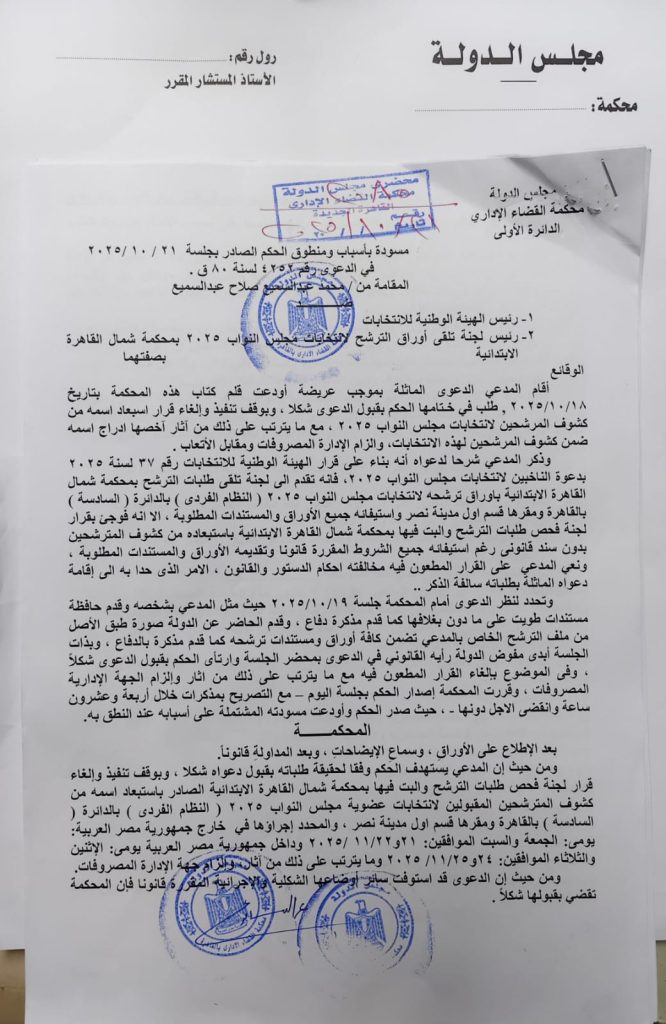 مجلس الدولة
رول رقم :
الأستاذ المستشار المقرر
محكمة :
مجلس الدولة
محكمة القضاء الإداري
الدائرة الأولى
محضرى مجلس الدولة
محكمة القضاء الإدارى
القاهرة الجديدة
مسودة بأسباب ومنطوق الحكم الصادر بجلسة ٢١ / ١٠ / ٢٠٢٥
في الدعوى رقم ٤٢٥٢ لسنة ٨٠ ق .
المقامة من / محمد عبدالسميع صلاح عبدالسميع
١- رئيس الهيئة الوطنية للانتخابات
٢- رئيس لجنة تلقى أوراق الترشح لانتخابات مجلس النواب ٢٠٢٥ بمحكمة شمال القاهرة
الابتدائية بصفتهما
الوقائع
أقام المدعي الدعوى الماثلة بموجب عريضة أودعت قلم كتاب هذه المحكمة بتاريخ
٢٠٢٥/١٠/١٨ , طلب في ختامها الحكم بقبول الدعوى شكلا ، وبوقف تنفيذ وإلغاء قرار اسبعاد اسمه من
كشوف المرشحين لانتخابات مجلس النواب ٢٠٢٥ ، مع ما يترتب على ذلك من آثار آخصها ادراج اسمه
ضمن كشوف المرشحين لهذه الانتخابات، والزام الإدارة المصروفات ومقابل الأتعاب .
وذكر المدعي شرحا لدعواه أنه بناء على قرار الهيئة الوطنية للانتخابات رقم ٣٧ لسنة ٢٠٢٥
بدعوة الناخبين لانتخابات مجلس النواب ٢٠٢٥، فانه تقدم الى لجنة تلقى طلبات الترشح بمحكمة شمال
القاهرة الابتدائية باوراق ترشحه لانتخابات مجلس النواب ٢٠٢٥ ( النظام الفردى ) بالدائرة ( السادسة )
بالقاهرة ومقرها قسم اول مدينة نصر واستيفائه جميع الأوراق والمستندات المطلوبة ، الا انه فوجئ بقرار
لجنة فحص طلبات الترشح والبت فيها بمحكمة شمال القاهرة الابتدائية باستبعاده من كشوف المترشحين
بدون سند قانونى رغم استيفائه جميع الشروط المقررة قانونا وتقديمه الأوراق والمستندات المطلوبة ،
ونعي المدعي على القرار المطعون فيه مخالفته احكام الدستور والقانون ، الامر الذى حدا به الى إقامة
دعواه الماثلة بطلباته سالفة الذكر ..
وتحدد لنظر الدعوى أمام المحكمة جلسة ٢٠٢٥/١٠/١٩ حيث مثل المدعي بشخصه وقدم حافظة
مستندات طويت على ما دون بغلافها كما قدم مذكرة دفاع ، وقدم الحاضر عن الدولة صورة طبق الأصل
من ملف الترشح الخاص بالمدعي تضمن كافة أوراق ومستندات ترشحه كما قدم مذكرة بالدفاع ، وبذات
الجلسة أبدى مفوض الدولة رأيه القانوني في الدعوى بمحضر الجلسة وارتأى الحكم بقبول الدعوى شكلاً
، وفى الموضوع بإلغاء القرار المطعون فيه مع ما يترتب على ذلك من اثار وإلزام الجهة الإدارية
المصروفات ، وقررت المحكمة إصدار الحكم بجلسة اليوم – مع التصريح بمذكرات خلال أربعة وعشرون
ساعة وانقضى الاجل دونها - ، حيث صدر الحكم وأودعت مسودته المشتملة على أسبابه عند النطق به.
المحكمــــــة
بعد الإطلاع على الأوراق ، وسماع الإيضاحات ، وبعد المداولة قانوناً.
ومن حيث إن المدعي يستهدف الحكم وفقا لحقيقة طلباته بقبول دعواه شكلا ، وبوقف تنفيذ وإلغاء
قرار لجنة فحص طلبات الترشح والبت فيها بمحكمة شمال القاهرة الابتدائية الصادر باستبعاد اسمه من
كشوف المترشحين المقبولين لانتخابات عضوية مجلس النواب ٢٠٢٥ ( النظام الفردى ) بالدائرة (
السادسة ) بالقاهرة ومقرها قسم اول مدينة نصر ، والمحدد إجراؤها في خارج جمهورية مصر العربية:
يومى: الجمعة والسبت الموافقين: ٢١و٢٠٢٥ /١١/٢٢ وداخل جمهورية مصر العربية يومى: الإثنين
والثلاثاء الموافقين: ٢٤و٢٠٢٥ /١١/٢٥ وما يترتب على ذلك من آثار، وإلزام جهة الإدارة المصروفات.
ومن حيث إن الدعوى قد استوفت سائر أوضاعها الشكلية والإجرائية المقررة قانونا فإن المحكمة
تقضي بقبولها شكلاً .